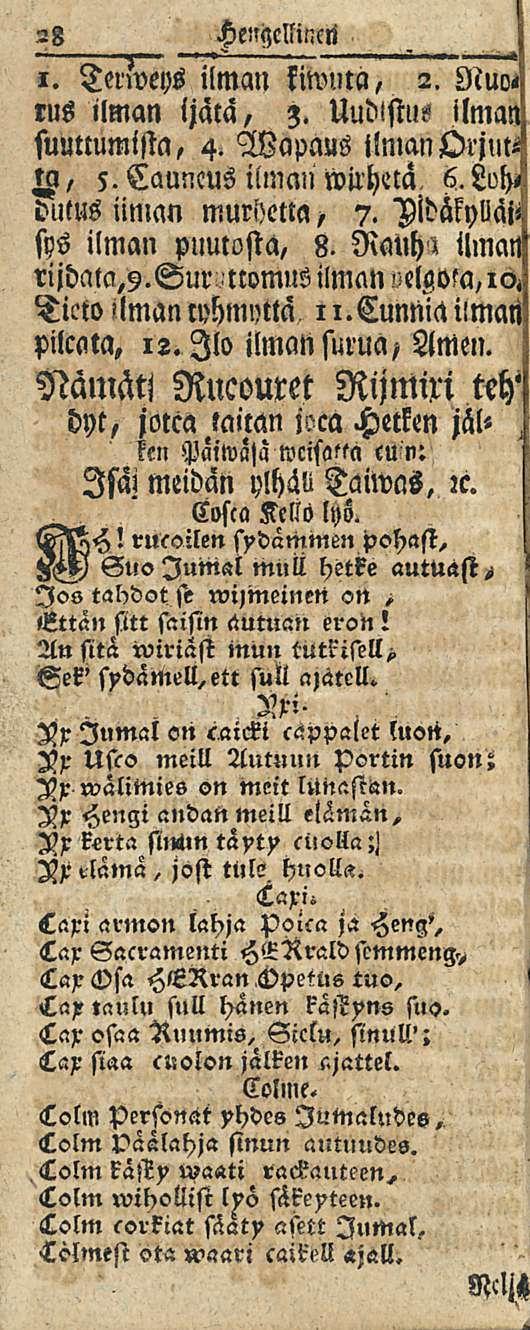 28 Hengellinen
1. Terweys ilman kiwuta, 2. Nuo⸗
rus ilman ijätä, 3. Uudistus ilman
suuttumista, 4. Wapaus ilman Orjut⸗
ta, 5. Cauneus ilman wirhetä 6. Loh⸗
dutus ilman murhetta, 7. Yldäkylläi⸗
sys ilman puutosta, 8. Rauha ilman
rijdata, 9. Suruttomus ilman pelgota, 10.
Tieto ilman tyhmyttä 11. Cunnia ilman
pilcata, 12. Ilo ilman surua, Amen.
Nämät Rucouxet Rijmixi teh⸗
dyt, jotca taitan joca Hetken jäl⸗
ken Päiwäsä weisatta cuin:
Isäj meidän ylhäll Taiwas, ꝛc.
Cosca Kello lyö.
AH! rucoilen sydämmen pohast,
Suo Jumal mull hetke autuast,
Jos tahdot se wijmeinen on,
Ettän sitt saisin autuan eron!
An sitä wiriäst mun tutkisell,
Sek' sydämell, ett sull ajatell.
Yxi.
Yx Jumal on caicki cappalet luon,
Yx Usco meill Autuun Portin suon;
Yx wälimies on meit lunastan.
Yx Hengi andan meill elämän,
Yx kerta sinun täyty cuolla;
Yx elämä, jost tule huolla.
Caxi.
Caxi armon lahja Poica ja Heng',
Cax Sacramenti HERrald semmeng,
Cax Osa HERran Opetus tuo,
Cax taulu sull hänen käskyns suo.
Cax osaa Ruumis, Sielu, sinull';
Cax siaa cuolon jälken ajattel.
Colme.
Colm Personat yhdes Jumaludes,
Colm Päälahja sinun autuudes.
Colm käsky waati rackauteen,
Colm wihollist lyö säkeyteen.
Colm corkiat sääty asett Jumal,
Colmest ota waari caikell ajall.
Neljä